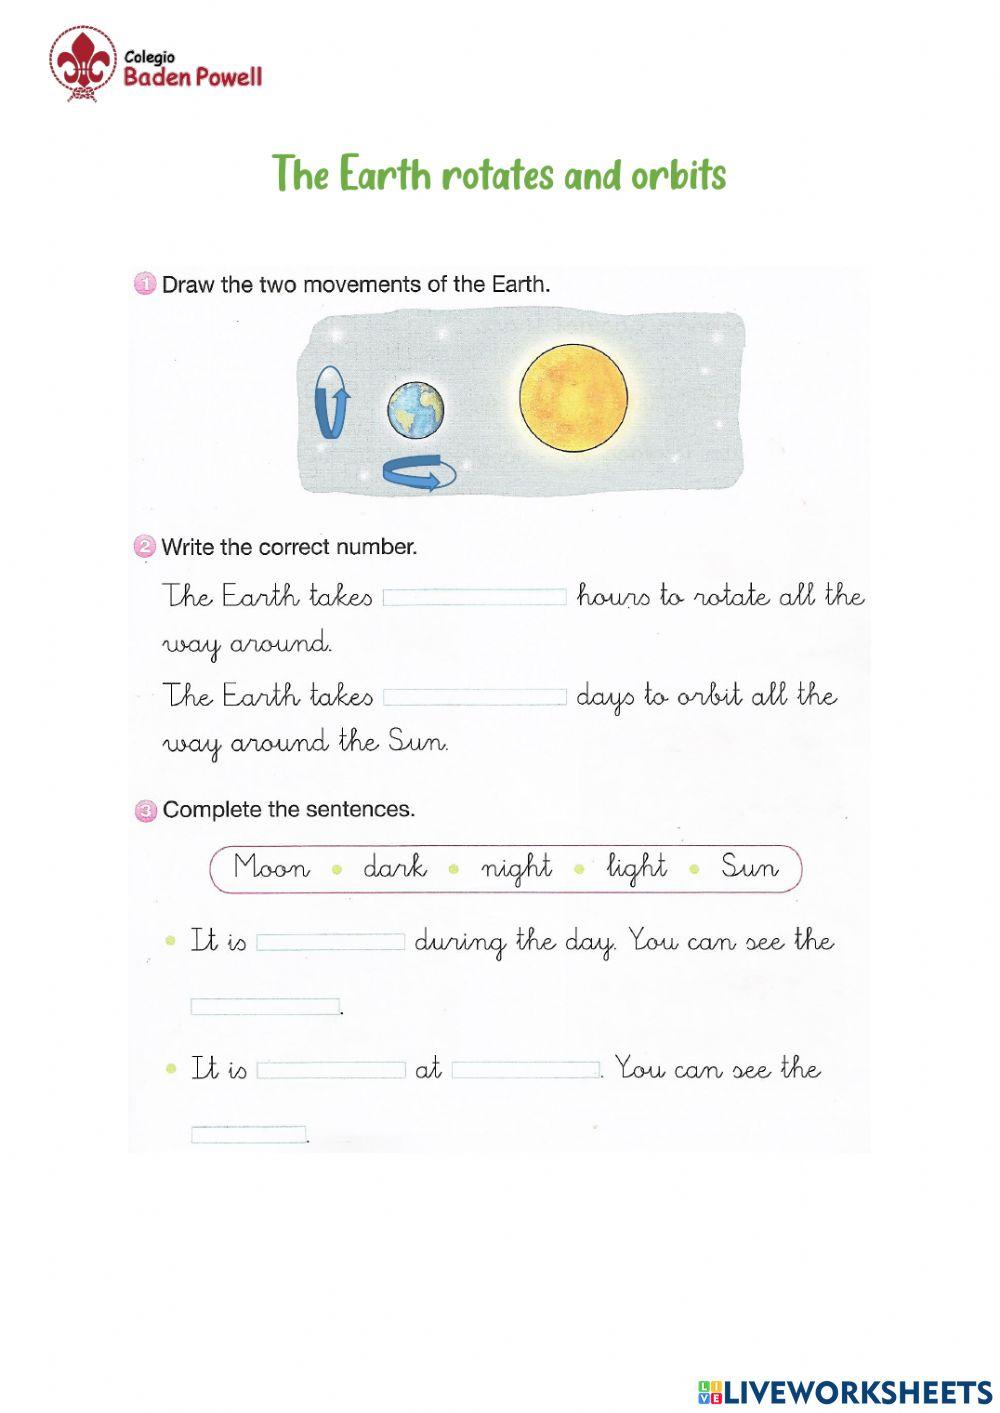 Colegio
Baden Powell
The Earth rotates and orbits
1 Draw the two movements of the Earth.
2 Write the correct number.
The Earth takes hours to rotate all the
way around.
The Earth takes days to orbit all the
way around the Sun.
3 Complete the sentences.
Moon • dark • night • light • Sun
• It is during the day. You can see the
.
• It is at . You can see the
.
LIVE LIVEWORKSHEETS